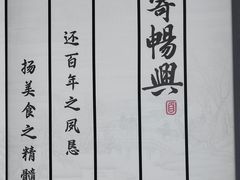 寄暢興
还百年之夙恳
扬美食之精髓